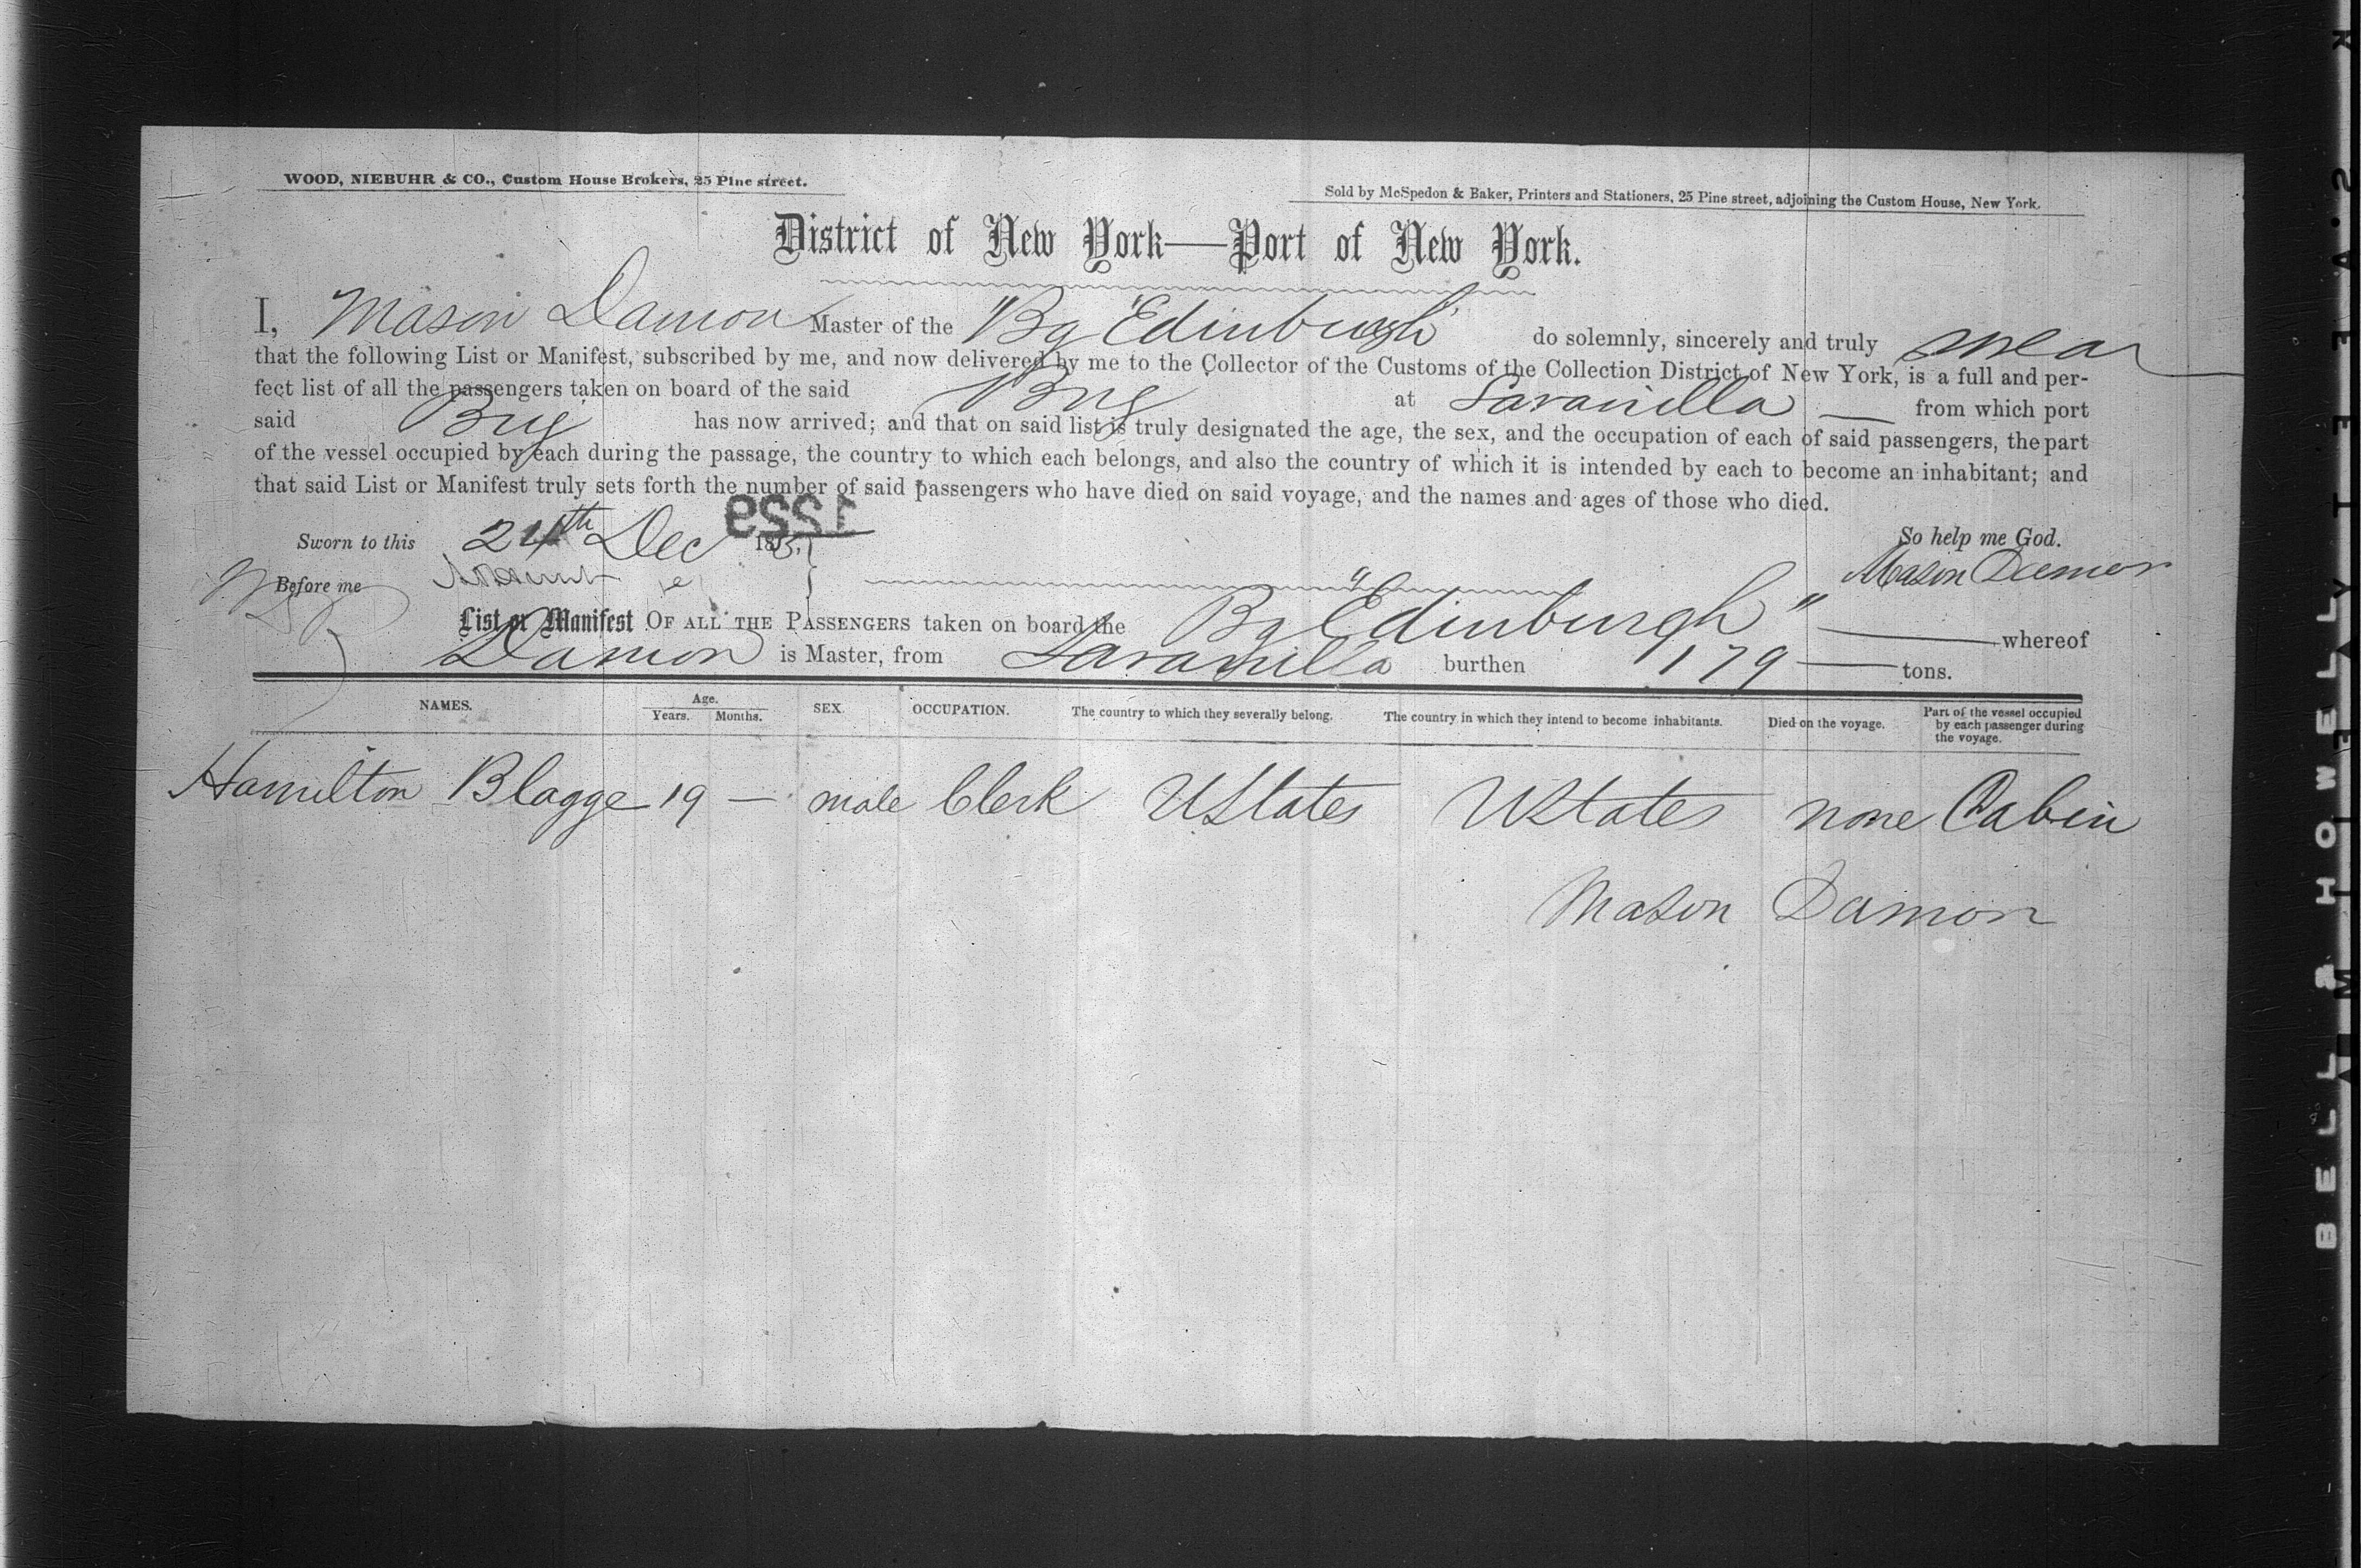 WOOD, NIEBUHR & CO., Custom House Brokers, 25 Pine street.
Sold by McSpedon & Baker, Printers and Stationers, 25 Pine street, adjoining the Custom House, New York.
District of New York—Port of New York.
I, Mason Damon Master of the "Bg Edinburgh" do solemnly, sincerely and truly swear
that the following List or Manifest, subscribed by me, and now delivered by me to the Collector of the Customs of the Collection District of New York, is a full and per-
fect list of all the passengers taken on board of the said Brig at Savanilla from which port
said Brig has now arrived; and that on said list is truly designated the age, the sex, and the occupation of each of said passengers, the part
of the vessel occupied by each during the passage, the country to which each belongs, and also the country of which it is intended by each to become an inhabitant; and
that said List or Manifest truly sets forth the number of said passengers who have died on said voyage, and the names and ages of those who died.
1229
Sworn to this 24th Dec 185 So help me God.
Before me Mason Damon
List or Manifest OF ALL THE PASSENGERS taken on board the Bg "Edinburgh" whereof
Damon is Master, from Savanilla burthen 179 tons.
NAMES. Age. Years. Months. SEX. OCCUPATION. The country to which they severally belong. The country in which they intend to become inhabitants. Died on the voyage. Part of the vessel occupied by each passenger during the voyage.
Hamilton Blagge 19 — male Clerk UStates UStates none Cabin
Mason Damon
BELL & HOWELL